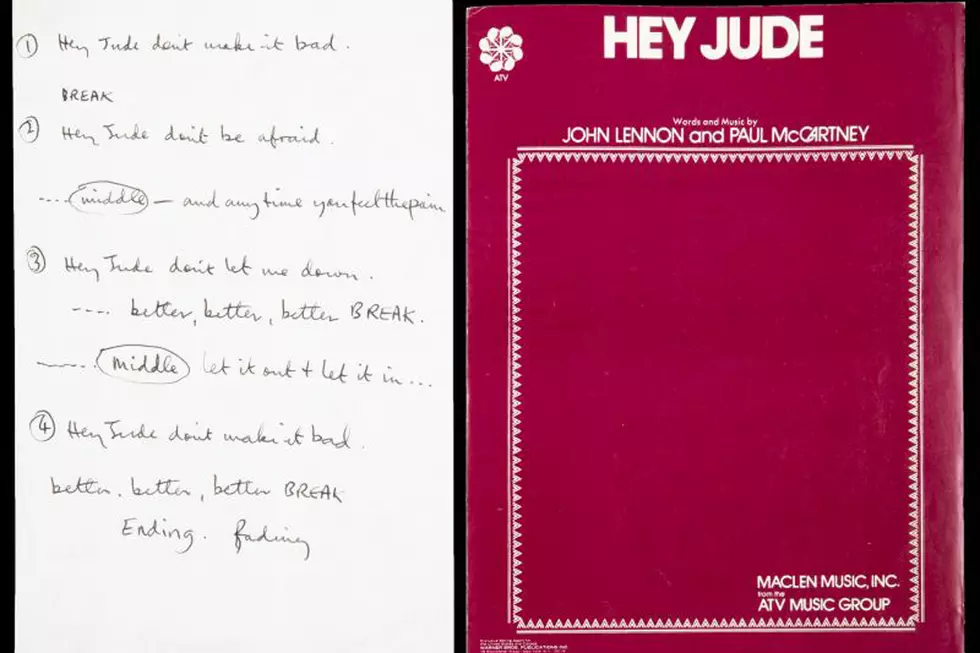 ① Hey Jude don't make it bad.
BREAK
② Hey Jude don't be afraid.
---- middle — and any time you feel the pain
③ Hey Jude don't let me down.
---- better, better, better BREAK.
------. middle let it out + let it in...
④ Hey Jude don't make it bad.
better. better, better BREAK
Ending. fading
ATV
HEY JUDE
Words and Music by
JOHN LENNON and PAUL McCARTNEY
MACLEN MUSIC, INC.
from the
ATV MUSIC GROUP
WARNER BROS. PUBLICATIONS INC.